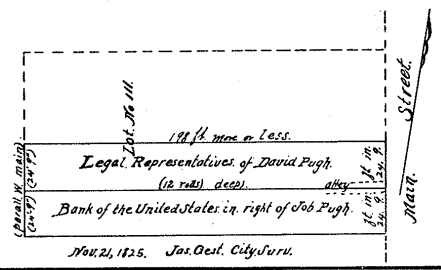 Lot. No 111.
Main. Street.
198 ft more or less.
Legal Representatives of David Pugh.
(12 rods) deep).
alley
Bank of the United States in right of Job Pugh.
(parall. W. main)
(24'9")
(24'9")
ft in.
24. 9.
ft in.
24. 9.
Nov. 21, 1825. Jas. Gest. City. Surv.